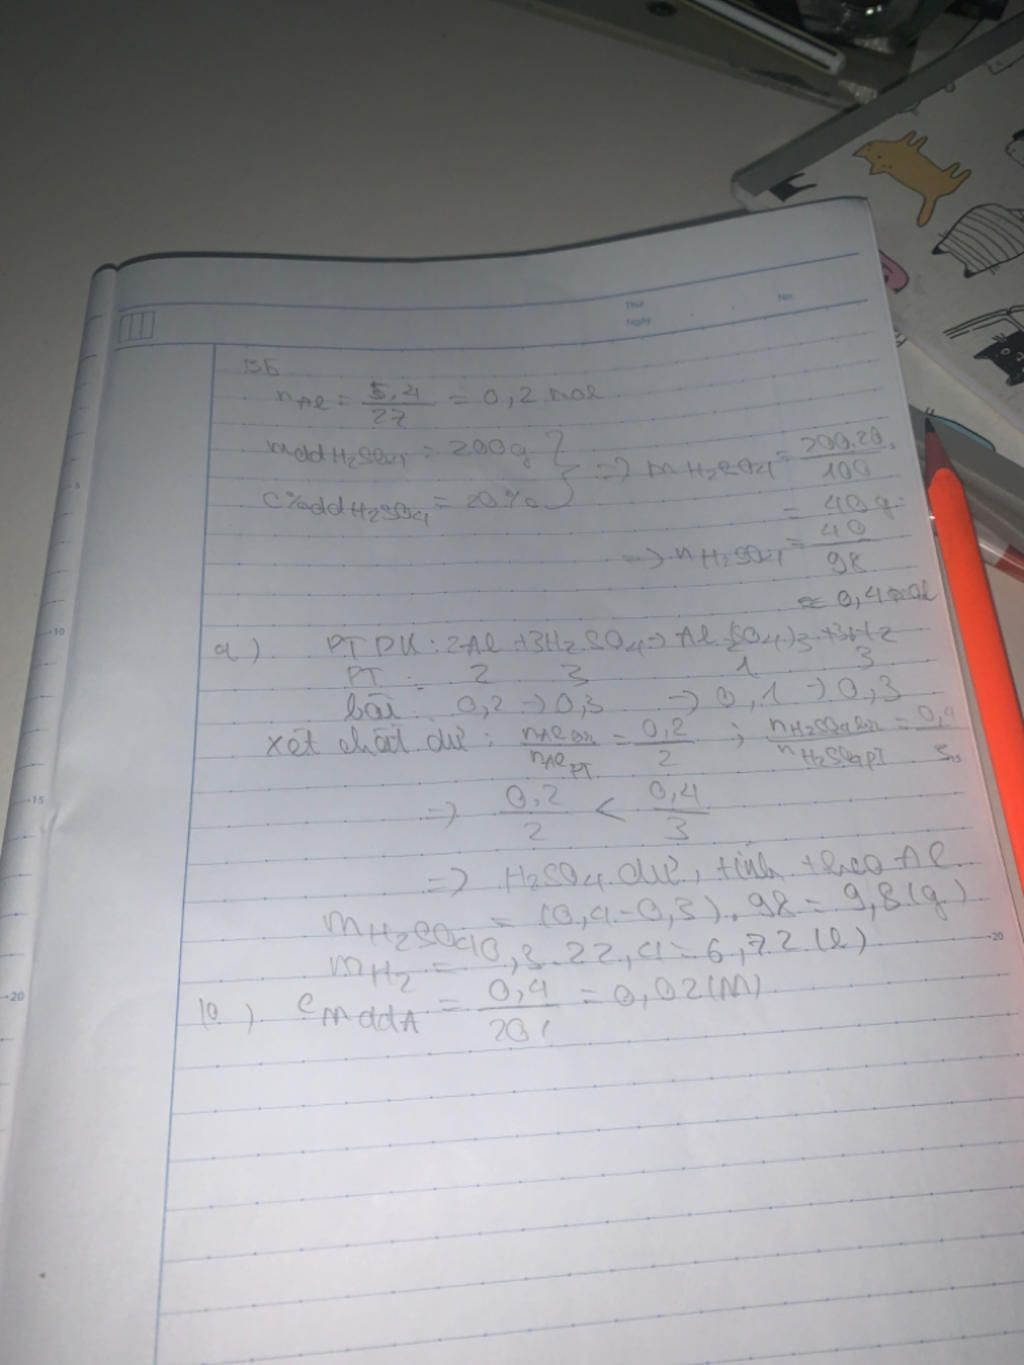 Thứ
Ngày
No.
B5
nAl = 5,4/27 = 0,2 mol
mdd H2SO4 = 200g } => m H2SO4 = 200.20/100
C%dd H2SO4 = 20%
= 40g
=> n H2SO4 = 40/98
≈ 0,4 mol
a) PTPK: 2Al + 3H2SO4 -> Al2(SO4)3 + 3H2
PT : 2 3 1 3
bài 0,2 -> 0,3 -> 0,1 -> 0,3
xét chất dư : nAl br/nAl PT = 0,2/2 ; nH2SO4 br/nH2SO4 PT = 0,4/3
=> 0,2/2 < 0,4/3
=> H2SO4 dư, tính theo Al
mH2SO4 = (0,4-0,3).98 = 9,8(g)
mH2 = 0,3.22,4 = 6,72(l)
b) CM ddA = 0,4/20 = 0,02(M)
5
10
15
20
20